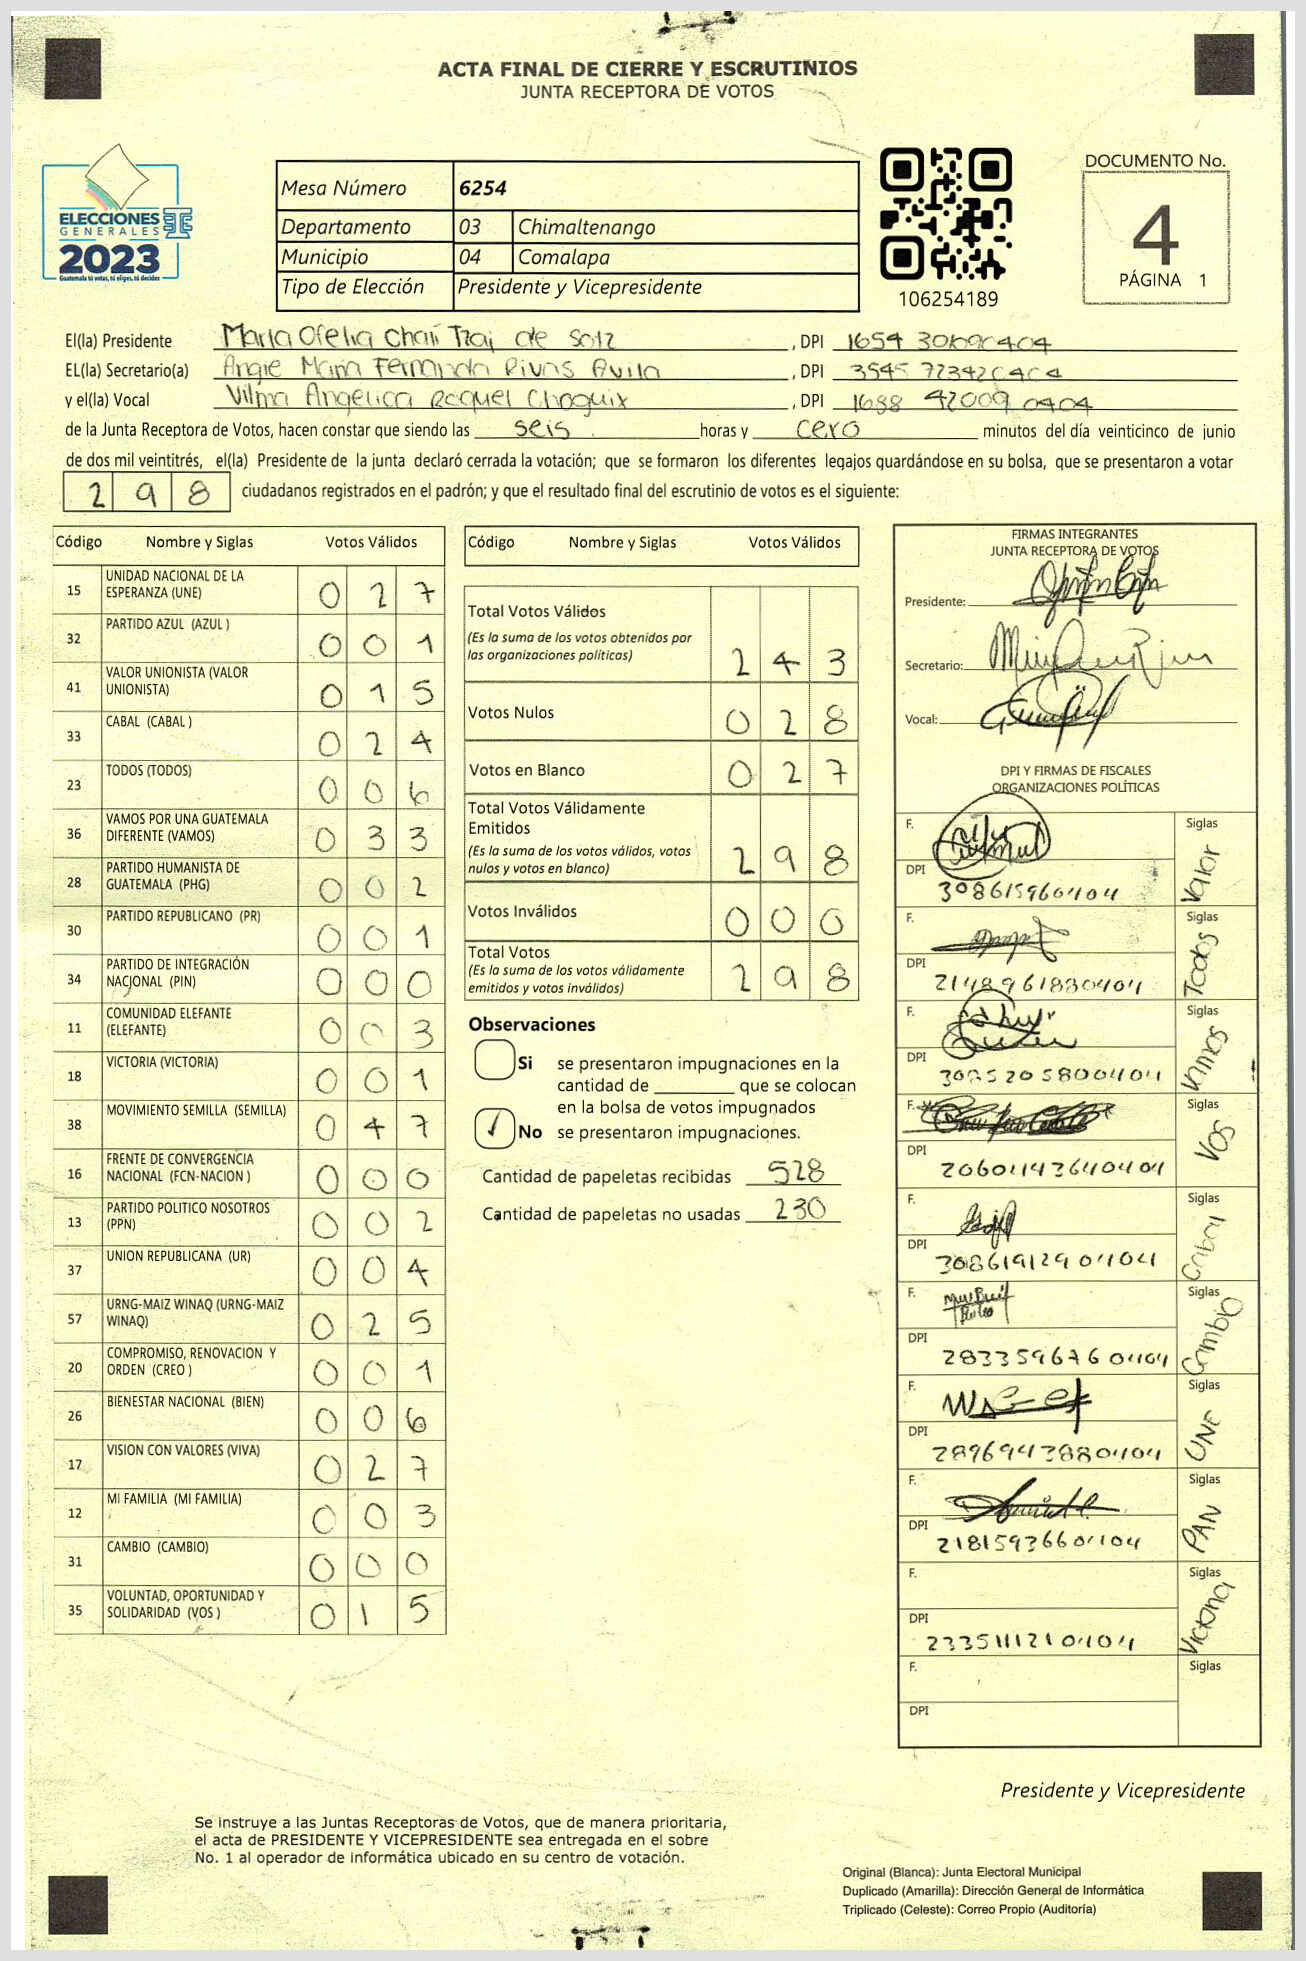 ACTA FINAL DE CIERRE Y ESCRUTINIOS
JUNTA RECEPTORA DE VOTOS
ELECCIONES
GENERALES
2023
Guatemala tú votas, tú eliges, tú decides
Mesa Número 6254
Departamento 03 Chimaltenango
Municipio 04 Comalapa
Tipo de Elección Presidente y Vicepresidente
106254189
DOCUMENTO No.
4
PÁGINA 1
El(la) Presidente Maria Ofelia Chalí Tzaj de Sotz , DPI 1654
EL(la) Secretario(a) Angie Maria Fernanda Rivas Avila , DPI 3545 723420404
y el(la) Vocal Vilma Angelica Raquel Choguix , DPI 1688 42009 0404
de la Junta Receptora de Votos, hacen constar que siendo las seis horas y cero minutos del día veinticinco de junio
de dos mil veintitrés, el(la) Presidente de la junta declaró cerrada la votación; que se formaron los diferentes legajos guardándose en su bolsa, que se presentaron a votar
298 ciudadanos registrados en el padrón; y que el resultado final del escrutinio de votos es el siguiente:
Código Nombre y Siglas Votos Válidos
15 UNIDAD NACIONAL DE LA ESPERANZA (UNE) 027
32 PARTIDO AZUL (AZUL ) 001
41 VALOR UNIONISTA (VALOR UNIONISTA) 015
33 CABAL (CABAL ) 024
23 TODOS (TODOS) 006
36 VAMOS POR UNA GUATEMALA DIFERENTE (VAMOS) 033
28 PARTIDO HUMANISTA DE GUATEMALA (PHG) 002
30 PARTIDO REPUBLICANO (PR) 001
34 PARTIDO DE INTEGRACIÓN NACIONAL (PIN) 000
11 COMUNIDAD ELEFANTE (ELEFANTE) 003
18 VICTORIA (VICTORIA) 001
38 MOVIMIENTO SEMILLA (SEMILLA) 047
16 FRENTE DE CONVERGENCIA NACIONAL (FCN-NACION ) 000
13 PARTIDO POLITICO NOSOTROS (PPN) 002
37 UNION REPUBLICANA (UR) 004
57 URNG-MAIZ WINAQ (URNG-MAIZ WINAQ) 025
20 COMPROMISO, RENOVACION Y ORDEN (CREO ) 001
26 BIENESTAR NACIONAL (BIEN) 006
17 VISION CON VALORES (VIVA) 027
12 MI FAMILIA (MI FAMILIA) 003
31 CAMBIO (CAMBIO) 000
35 VOLUNTAD, OPORTUNIDAD Y SOLIDARIDAD (VOS ) 015
Código Nombre y Siglas Votos Válidos
Total Votos Válidos 243
(Es la suma de los votos obtenidos por
las organizaciones políticas)
Votos Nulos 028
Votos en Blanco 027
Total Votos Válidamente
Emitidos 298
(Es la suma de los votos válidos, votos
nulos y votos en blanco)
Votos Inválidos 000
Total Votos 298
(Es la suma de los votos válidamente
emitidos y votos inválidos)
Observaciones
Si se presentaron impugnaciones en la
cantidad de ________ que se colocan
en la bolsa de votos impugnados
No se presentaron impugnaciones.
Cantidad de papeletas recibidas 528
Cantidad de papeletas no usadas 230
FIRMAS INTEGRANTES
JUNTA RECEPTORA DE VOTOS
Presidente:
Secretario:
Vocal:
DPI Y FIRMAS DE FISCALES
ORGANIZACIONES POLÍTICAS
F. Siglas Valor
DPI 308615960404
F. Siglas Todos
DPI 2148961880404
F. Siglas Vamos
DPI 3085205800404
F. Siglas VOS
DPI 2060114364 0404
F. Siglas Cabal
DPI 3086191290404
F. Siglas Cambio
DPI 2833596760404
F. Siglas UNE
DPI 2896943880404
F. Siglas PAN
DPI 2181593660404
F. Siglas Victoria
DPI 2335111210404
F. Siglas
DPI
Presidente y Vicepresidente
Se instruye a las Juntas Receptoras de Votos, que de manera prioritaria,
el acta de PRESIDENTE Y VICEPRESIDENTE sea entregada en el sobre
No. 1 al operador de informática ubicado en su centro de votación.
Original (Blanca): Junta Electoral Municipal
Duplicado (Amarilla): Dirección General de Informática
Triplicado (Celeste): Correo Propio (Auditoría)